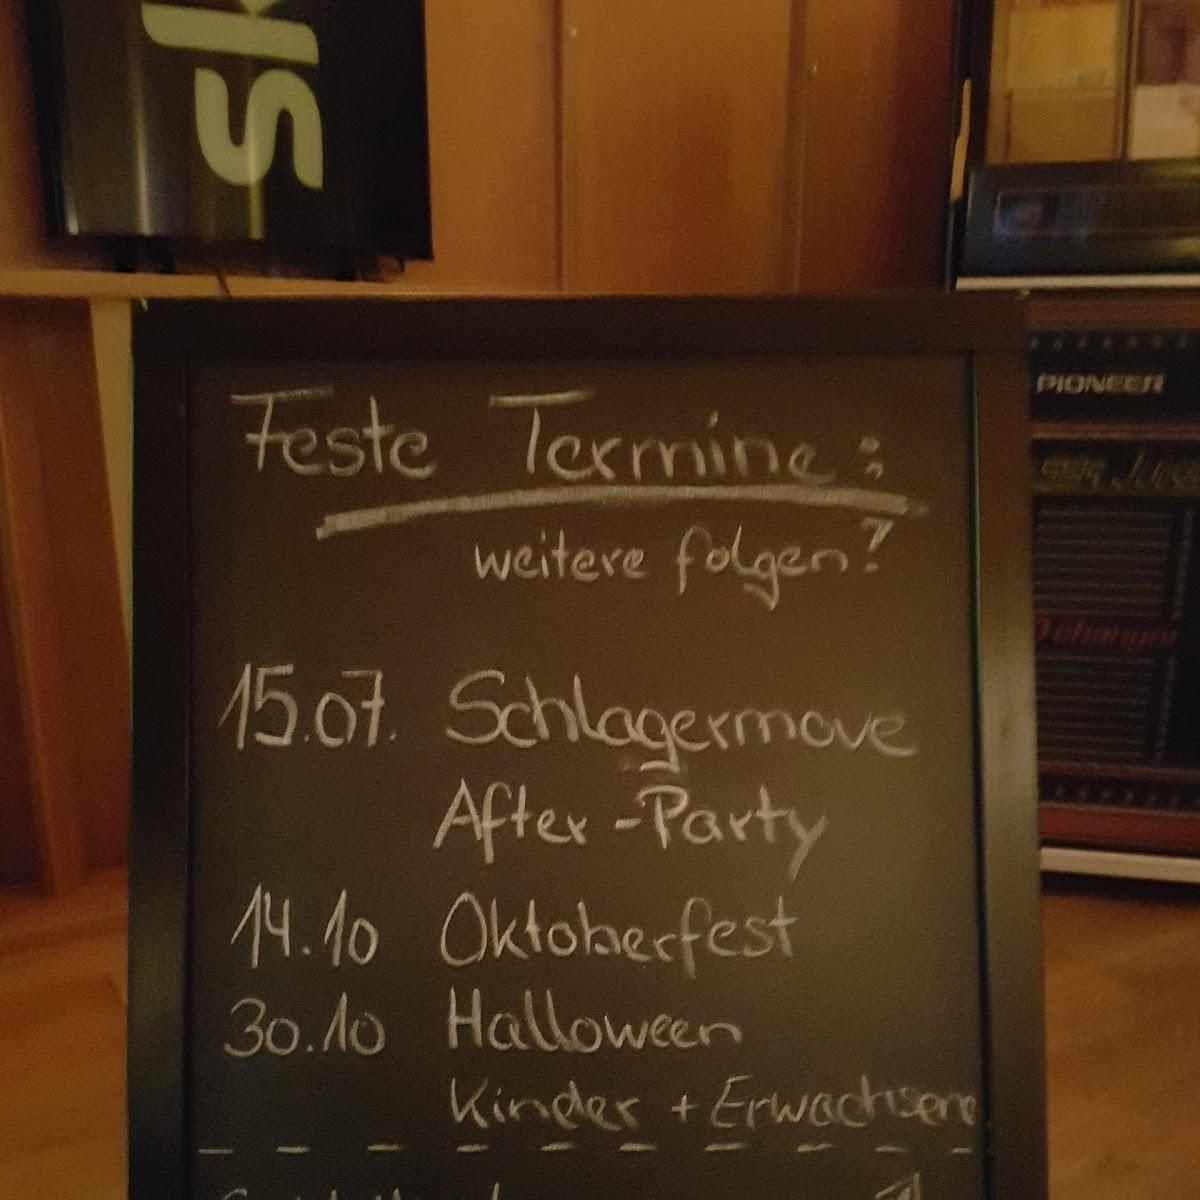 Feste Termine:
weitere folgen?
15.07. Schlagermove
After-Party
14.10 Oktoberfest
30.10 Halloween
Kinder + Erwachsene
PIONEER
changer